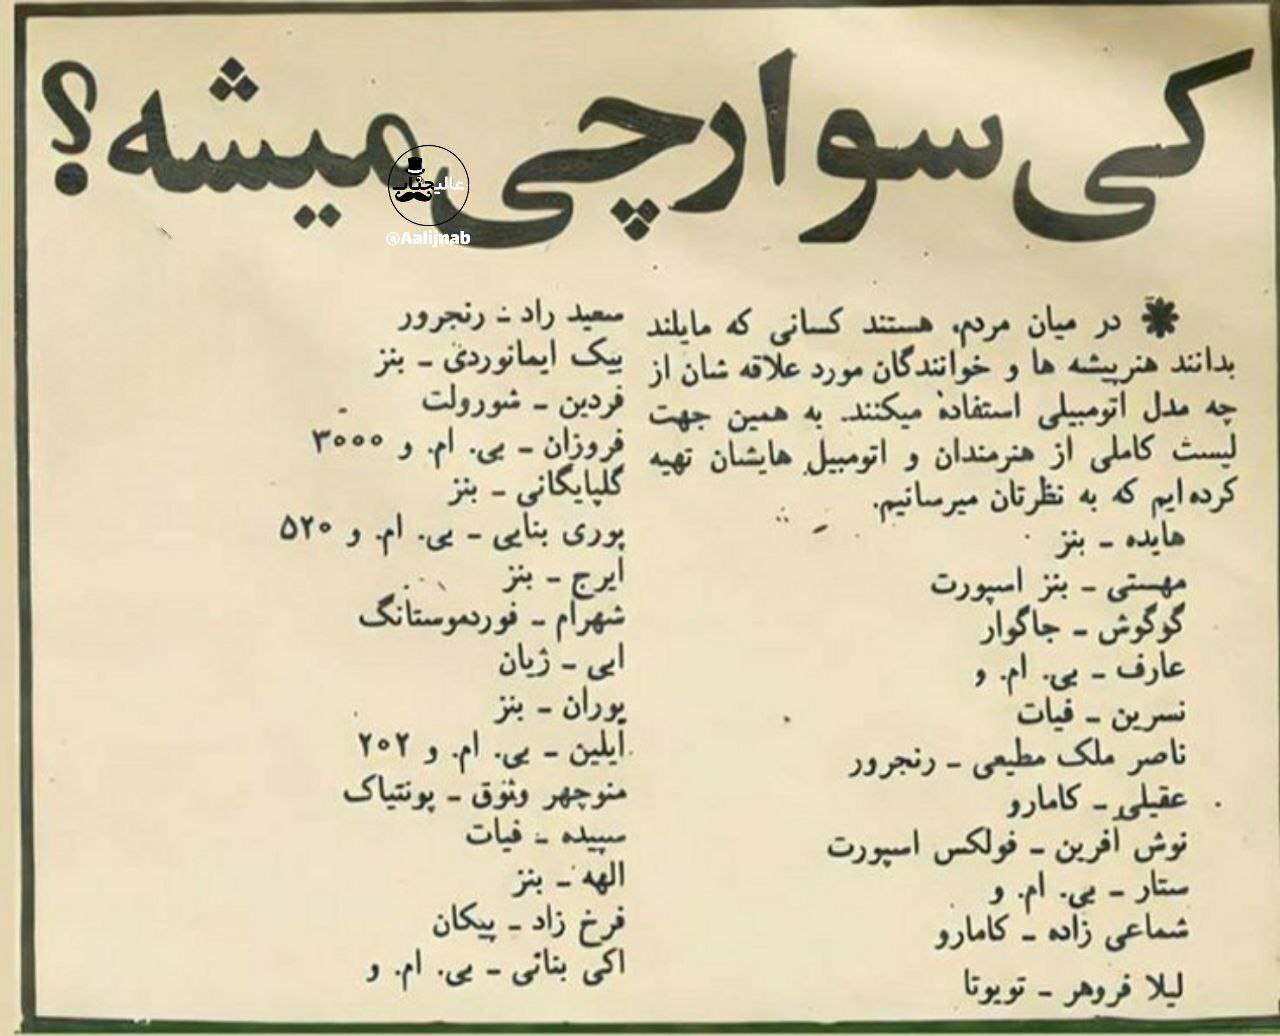 کی سوار چی میشه؟
عالیجناب
@Aalijnab
در میان مردم، هستند کسانی که مایلند
بدانند هنرپیشه ها و خوانندگان مورد علاقه شان از
چه مدل اتومبیلی استفاده میکنند. به همین جهت
لیست کاملی از هنرمندان و اتومبیل هایشان تهیه
کرده ایم که به نظرتان میرسانیم.
هایده ـ بنز
مهستی ـ بنز اسپورت
گوگوش ـ جاگوار
عارف ـ بی. ام. و
نسرین ـ فیات
ناصر ملک مطیعی ـ رنجرور
عقیلی ـ کامارو
نوش آفرین ـ فولکس اسپورت
ستار ـ بی. ام. و
شماعی زاده ـ کامارو
لیلا فروهر ـ تویوتا
سعید راد ـ رنجرور
بیک ایمانوردی ـ بنز
فردین ـ شورولت
فروزان ـ بی. ام. و ۳۰۰۰
گلپایگانی ـ بنز
پوری بنایی ـ بی. ام. و ۵۲۰
ایرج ـ بنز
شهرام ـ فوردموستانگ
ابی ـ ژیان
پوران ـ بنز
آیلین ـ بی. ام. و ۲۰۲
منوچهر وثوق ـ پونتیاک
سپیده ـ فیات
الهه ـ بنز
فرخ زاد ـ پیکان
اکی بنائی ـ بی. ام. و